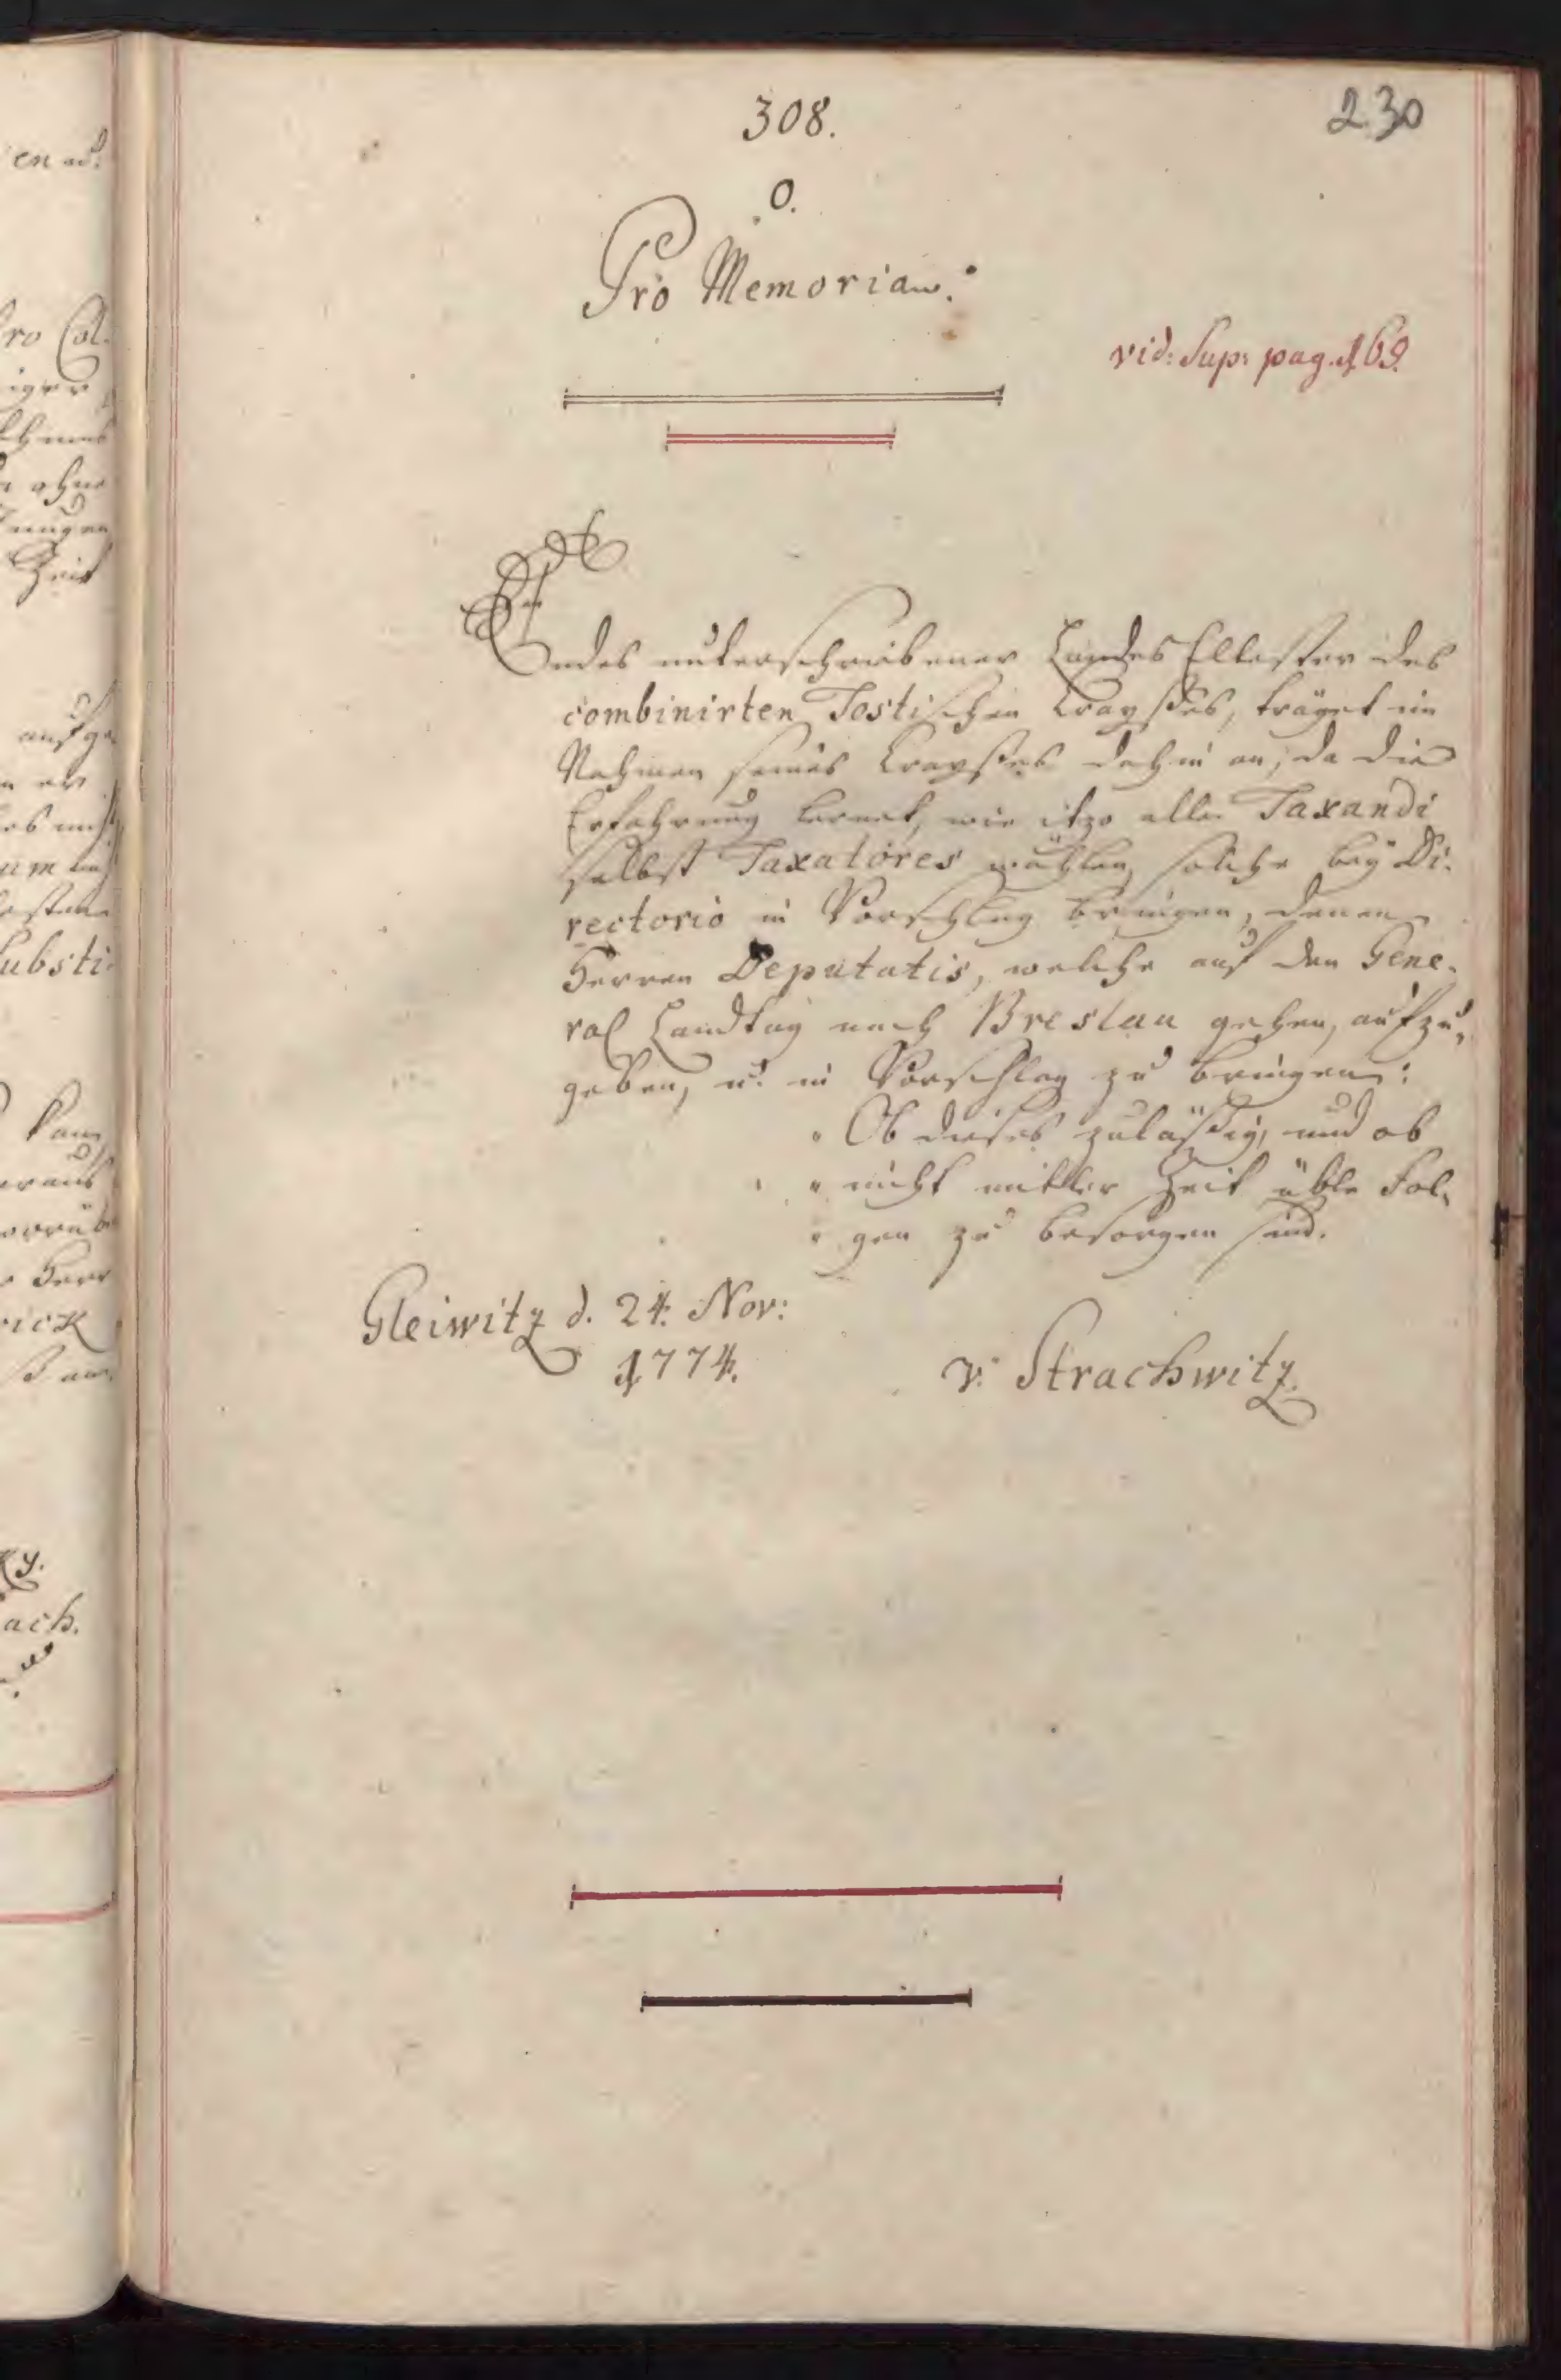 308.
230
O.
Pro Memoria.
vid: Sup: pag. 169.
Endes unterschriebener Landes Ellester des
combinirten Tostischen Crayßes, träget im
Nahmen seines Crayßes dahin an, da die
Erfahrung lernet, wie itzo alle Taxandi
selbst Taxatores wählen, solche bey Di-
rectorio in Vorschlag bringen, denen
Herren Deputatis, welche auf den Gene-
ral Landtag nach Breslau gehen, aufzu-
geben, u. in Vorschlag zu bringen:
" Ob dieses zuläßig, und ob
" nicht mittler Zeit üble Fol-
" gen zu besorgen sind.
Gleiwitz d. 24. Nov:
1774.
v. Strachwitz.
en u.
ro Col-
iger
ohne
Zeit
aufge-
um
Substi-
kann
Herr
rick
ky.
ach.